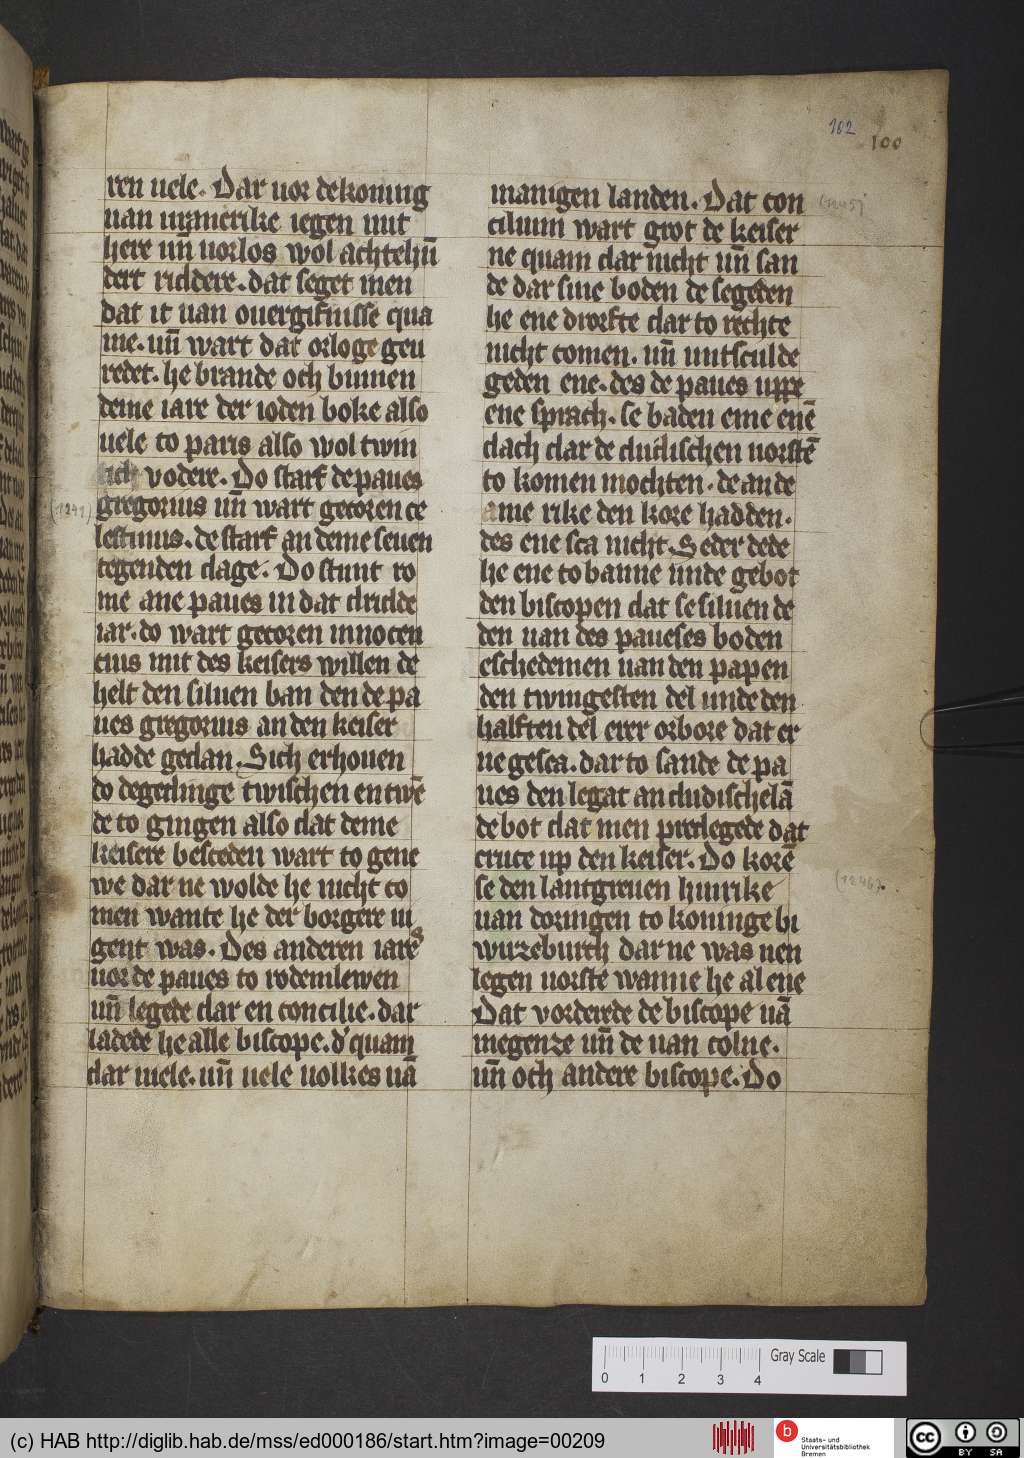 102
100
ren uele. Dar uor de koning
uan nauerike iegen mit
here uñ uorlos wol achtehũ
dert riddere. dat seget men
dat it uan ouergifnisse qua
me. uñ wart dat orloge geu
redet. he brande och binnen
deme iare der ioden boke also
uele to paris also wol twin
tich vodere. Do starf de paues
gregorius uñ wart gecoren ce
(1241)
lestinus. de starf an deme seuen
tegenden dage. Do stunt ro
me ane paues in dat dridde
iar. do wart gecoren innocen
cius mit des keisers willen de
helt den siluen ban den de pa
ues gregorius an den keiser
hadde gedan. Sich erhouen
do degedinge twischen en twē
de to gingen also dat deme
keisere besceden wart to gene
we dar ne wolde he nicht co
men wante he der borgere in
gent was. Des anderen iares
uor de paues to rodemlewen
uñ legede dar en concilie. dar
ladede he alle biscope. d' quam
dar uiele. uñ uele uolkes uā
manigen landen. Dat con
(1245)
cilium wart grot de keiser
ne quam dar nicht uñ san
de dar sine boden de segeden
he ene dorfte dar to rechte
nicht comen. uñ untsculde
geden ene. des de paues uppe
ene sprach. se baden eme enē
dach dar de dudischen uorstē
to komen mochten. de an de
me rike den kore hadden.
des ene sca nicht. Seder dede
he ene to banne unde gebot
den biscopen dat se siluen de
den uan des paueses boden
eschedemen uan den papen
den twingesten del unde den
halften del erer orbore dat er
ne gesca. dar to sande de pa
ues den legat an dudischelā
de bot dat men predegede dat
cruce up den keiser. Do korē
(1246)
se den lantgreuen hinrike
uan doringen to koninge bi
wirzeburch dar ne was nen
legen uorste wanne he al ene
Dat vorderede de biscope uā
megenze uñ de uan colne.
uñ och andere biscope. Do
0 1 2 3 4
Gray Scale
(c) HAB http://diglib.hab.de/mss/ed000186/start.htm?image=00209
b
Staats- und
Universitätsbibliothek
Bremen
cc
BY SA